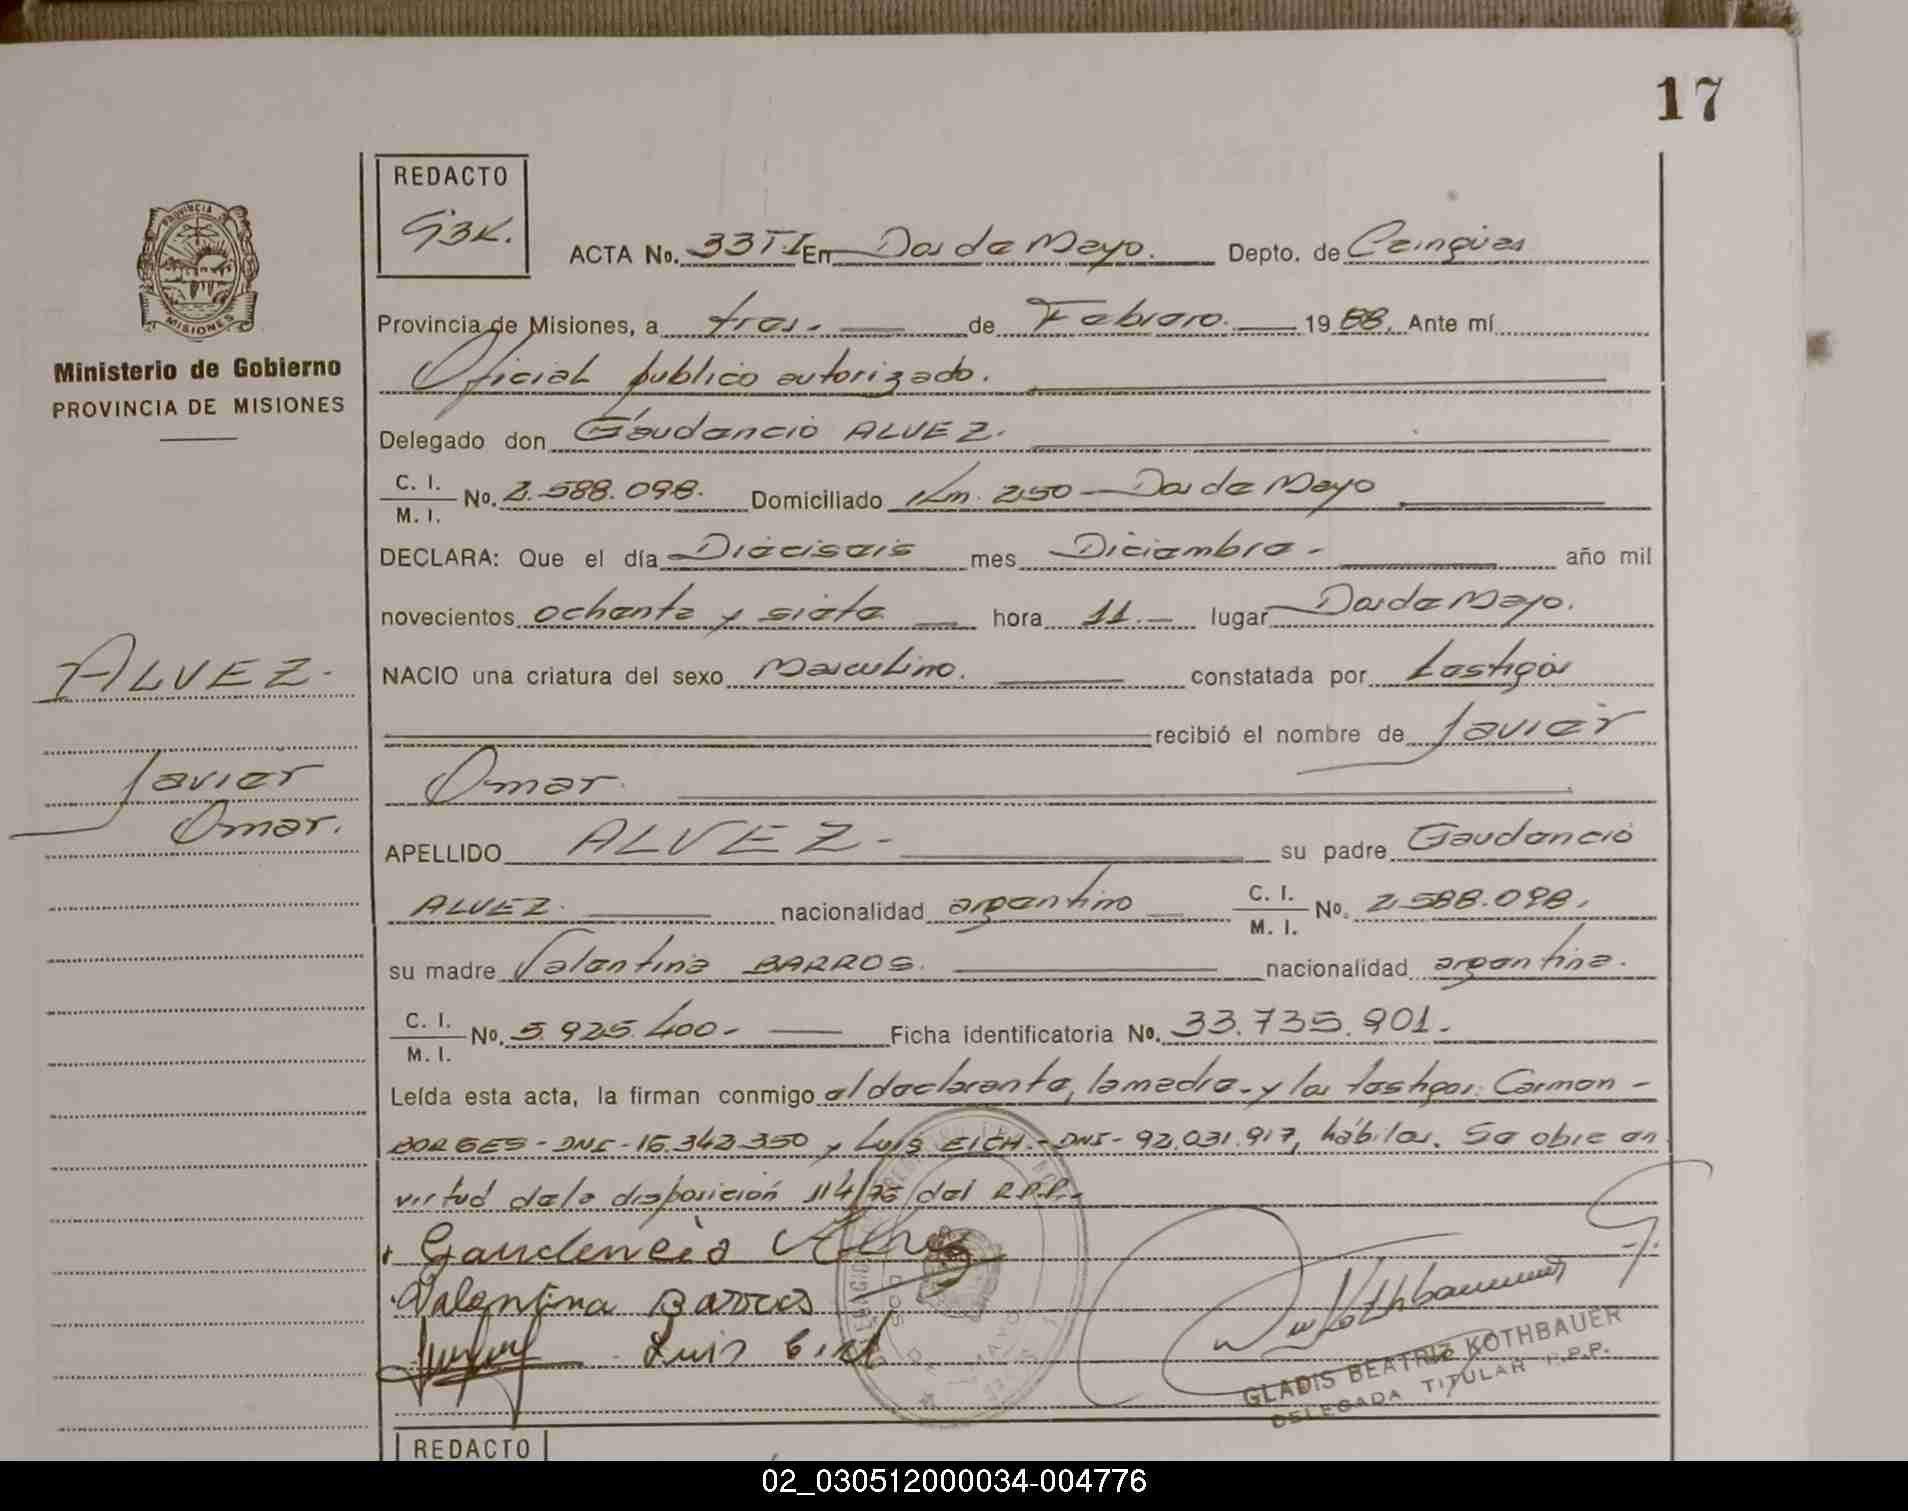 17
REDACTO
GBK.
ACTA No. 33 T.I En Dos de Mayo. Depto. de Cainguas
Provincia de Misiones, a tres.- de Febrero. 1988. Ante mí
Oficial publico autorizado.
Delegado don Gaudencio ALVEZ.
C. I.
M. I. No. 2.588.098. Domiciliado Km. 250 - Dos de Mayo
DECLARA: Que el día Dieciseis mes Diciembre - año mil
novecientos ochenta y siete hora 11.- lugar Dos de Mayo.
NACIO una criatura del sexo Masculino. constatada por testigos
recibió el nombre de Javier
Omar.
APELLIDO ALVEZ.- su padre Gaudencio
ALVEZ. nacionalidad argentino C. I.
M. I. No. 2.588.098.
su madre Valentina BARROS. nacionalidad argentina.
C. I.
M. I. No. 5.925.400.- Ficha identificatoria No. 33.735.901.
Leída esta acta, la firman conmigo el declarante, la madre y los testigos: Carmen -
BORGES - DNI - 16.342.350 y Luis EICH.- DNI - 92.031.917, hábiles. Se obre en
virtud de la disposición 114/75 del R.P.P.-
Gaudencio Alvez
Valentina Barros
Luis Eich
GLADIS BEATRIZ KOTHBAUER
DELEGADA TITULAR R.P.P.
PROVINCIA
MISIONES
Ministerio de Gobierno
PROVINCIA DE MISIONES
ALVEZ.-
Javier
Omar.
DOS DE MAYO
REDACTO
02_030512000034-004776